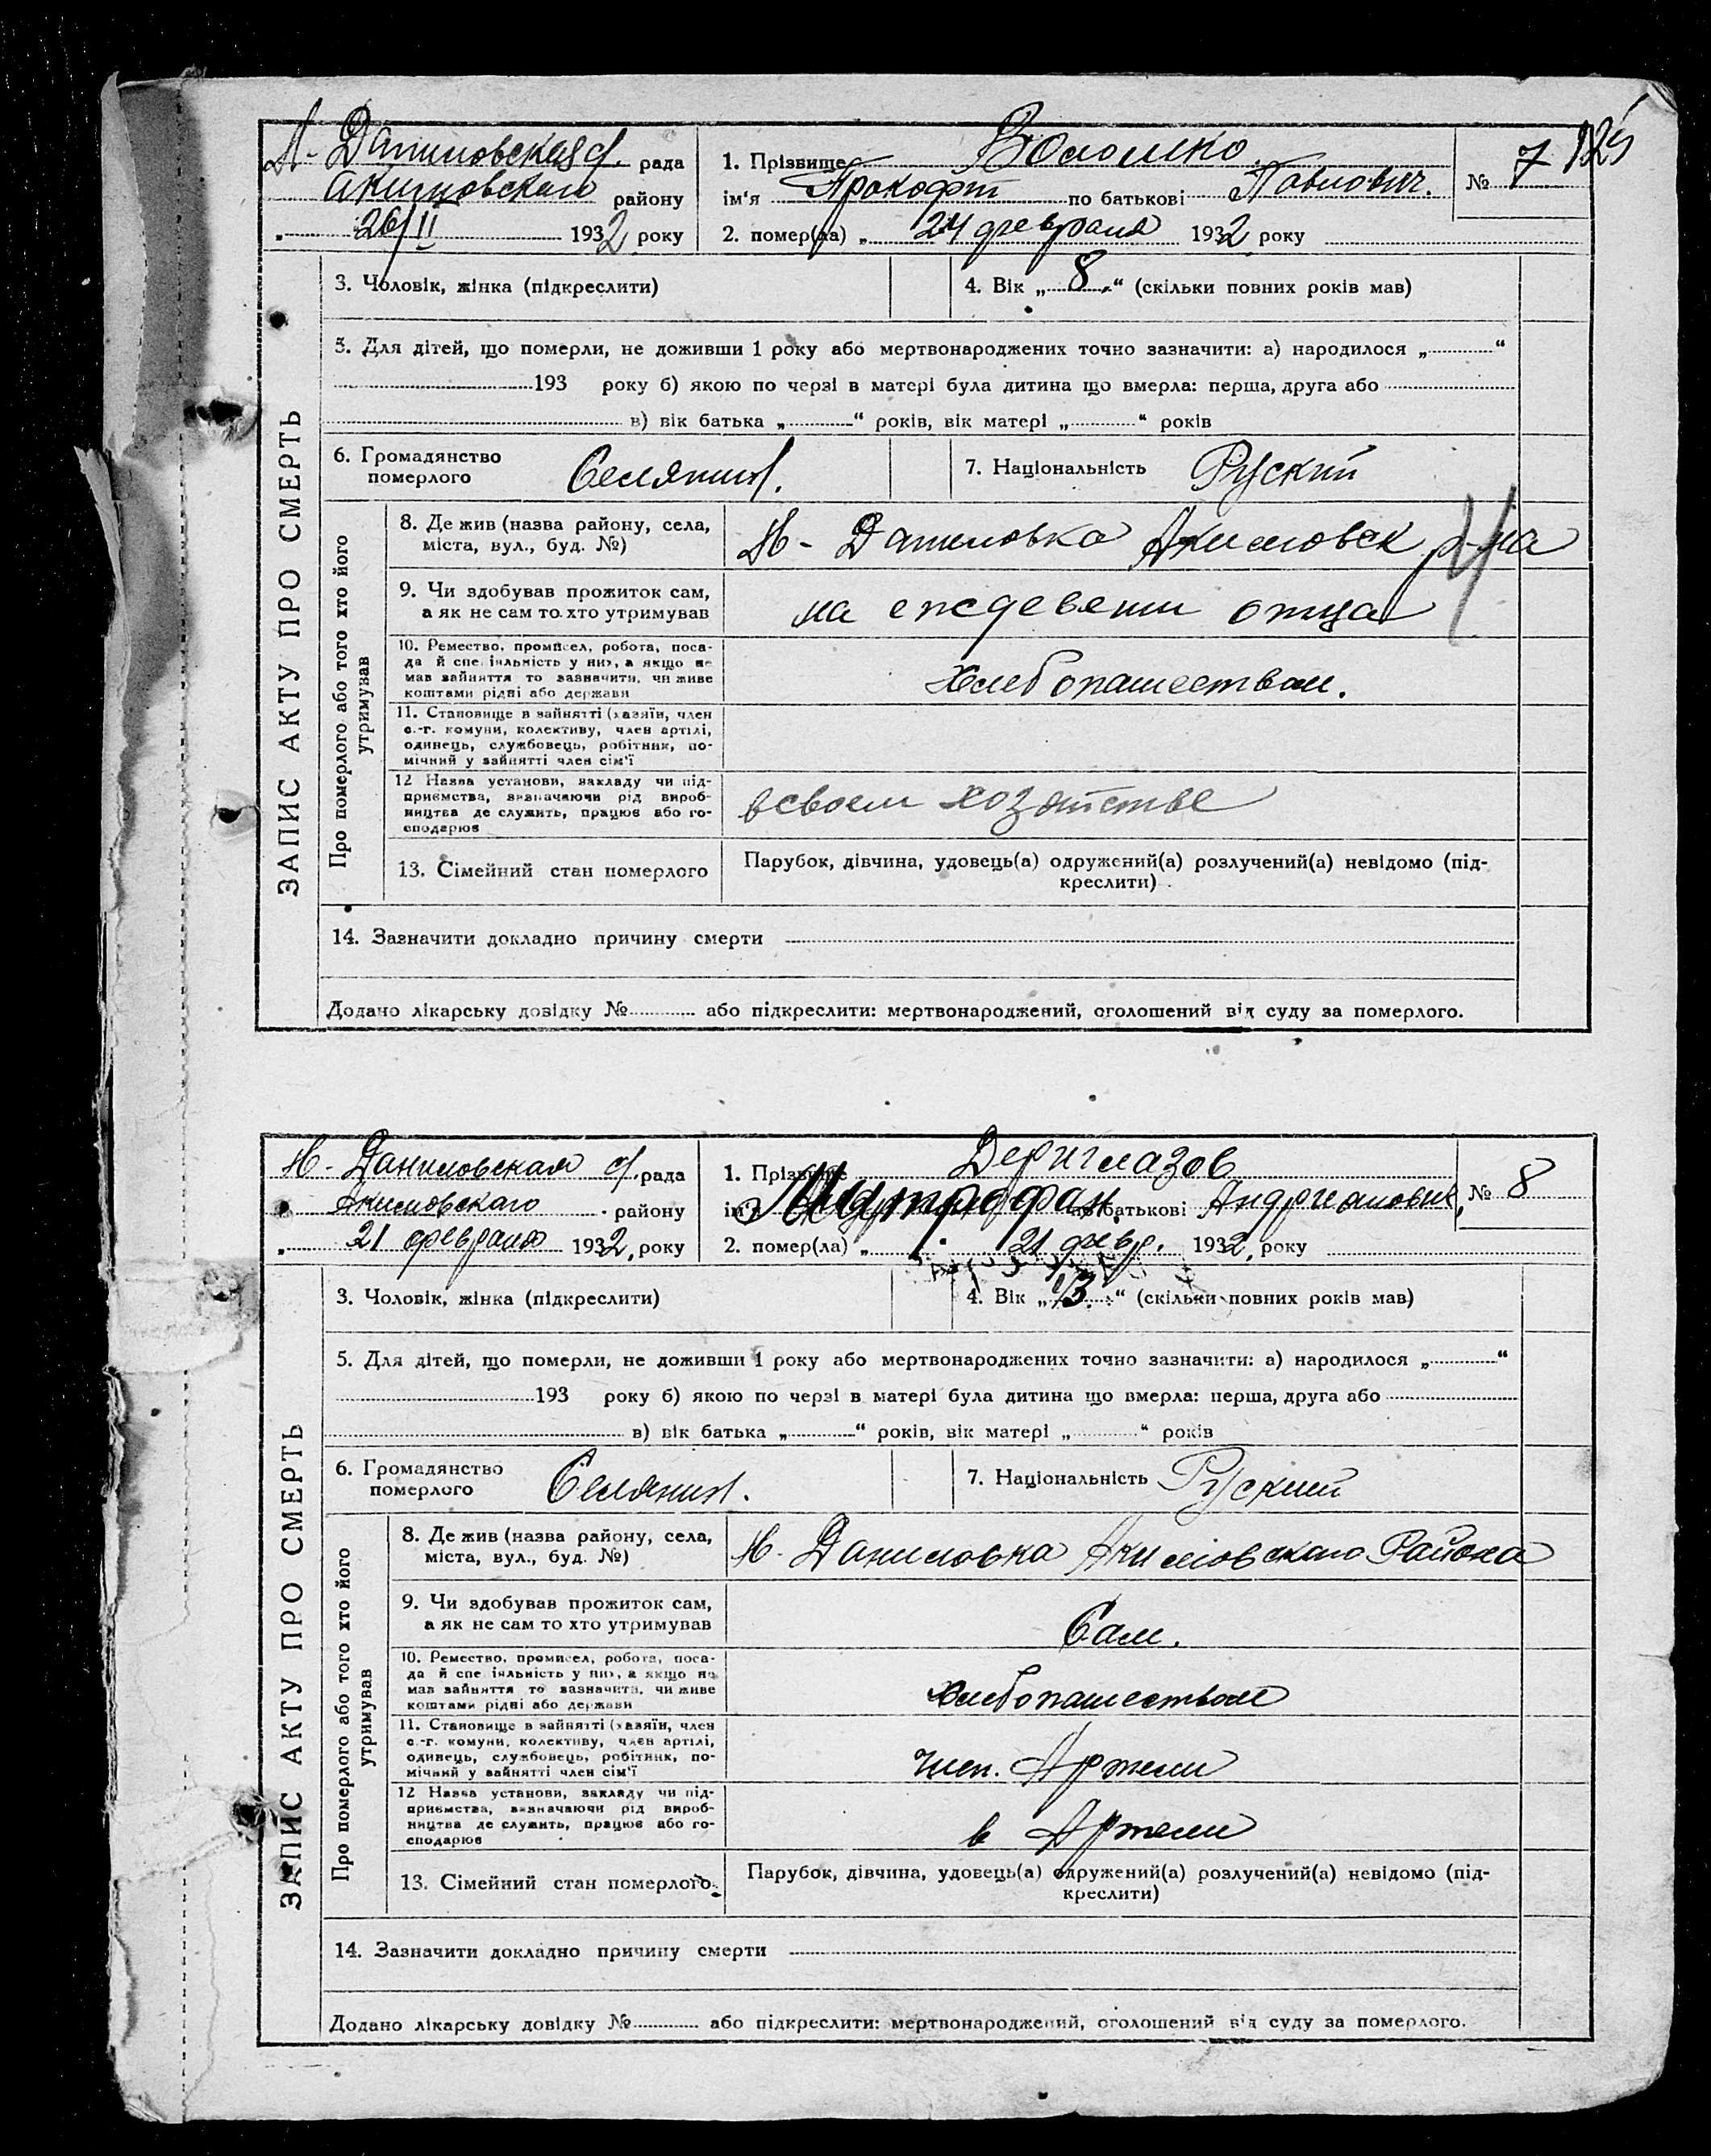 Н-Даниловская с/рада 1. Прізвище Волошко. № 7 125
Акимовского району ім'я Прокофий по батькові Павлович.
„ 26/II 1932 року 2. помер(ла) „ 24 февраля 1932 року
ЗАПИС АКТУ ПРО СМЕРТЬ
3. Чоловік, жінка (підкреслити) 4. Вік „ 8 “ (скільки повних років мав)
5. Для дітей, що померли, не доживши 1 року або мертвонароджених точно зазначити: а) народилося „ “
193 року б) якою по черзі в матері була дитина що вмерла: перша, друга або
в) вік батька „ “ років, вік матері „ “ років
6. Громадянство померлого Селянин. 7. Національність Руский
Про померлого або того хто його утримував
8. Де жив (назва району, села,
міста, вул., буд. №) Н-Даниловка Акимовск р-на
9. Чи здобував прожиток сам,
а як не сам то хто утримував на иждевении отца
10. Ремество, промисел, робота, поса-
да й спеціяльність у них, а якщо не
мав зайняття то зазначити, чи живе
коштами рідні або держави Хлебопашеством.
11. Становище в зайнятті (хазяїн, член
с.-г. комуни, колективу, член артілі,
одинець, службовець, робітник, по-
мічний у зайнятті член сім'ї
12 Назва установи, закладу чи під-
приємства, визначаючи рід вироб-
ництва де служить, працює або го-
сподарює в своем хозяйстве
13. Сімейний стан померлого Парубок, дівчина, удовець(а) одружений(а) розлучений(а) невідомо (під-
креслити)
14. Зазначити докладно причину смерти
Додано лікарську довідку № або підкреслити: мертвонароджений, оголошений від суду за померлого.
Н-Даниловская с/рада 1. Прізвище Дериглазов № 8
Акимовскаго району ім'я Митрофан по батькові Андрианович.
„ 21 февраля 1932, року 2. помер(ла) „ 21 февр. 1932, року
ЗАПИС АКТУ ПРО СМЕРТЬ
3. Чоловік, жінка (підкреслити) 4. Вік „ “ (скільки повних років мав)
5. Для дітей, що померли, не доживши 1 року або мертвонароджених точно зазначити: а) народилося „ “
193 року б) якою по черзі в матері була дитина що вмерла: перша, друга або
в) вік батька „ “ років, вік матері „ “ років
6. Громадянство померлого Селянин. 7. Національність Руский
Про померлого або того хто його утримував
8. Де жив (назва району, села,
міста, вул., буд. №) Н-Даниловка Акимовскаго Района
9. Чи здобував прожиток сам,
а як не сам то хто утримував Сам.
10. Ремество, промисел, робота, поса-
да й спеціяльність у них, а якщо не
мав зайняття то зазначити, чи живе
коштами рідні або держави Хлебопашеством
11. Становище в зайнятті (хазяїн, член
с.-г. комуни, колективу, член артілі,
одинець, службовець, робітник, по-
мічний у зайнятті член сім'ї член. Артели
12 Назва установи, закладу чи під-
приємства, визначаючи рід вироб-
ництва де служить, працює або го-
сподарює в Артели
13. Сімейний стан померлого. Парубок, дівчина, удовець(а) одружений(а) розлучений(а) невідомо (під-
креслити)
14. Зазначити докладно причину смерти
Додано лікарську довідку № або підкреслити: мертвонароджений, оголошений від суду за померлого.